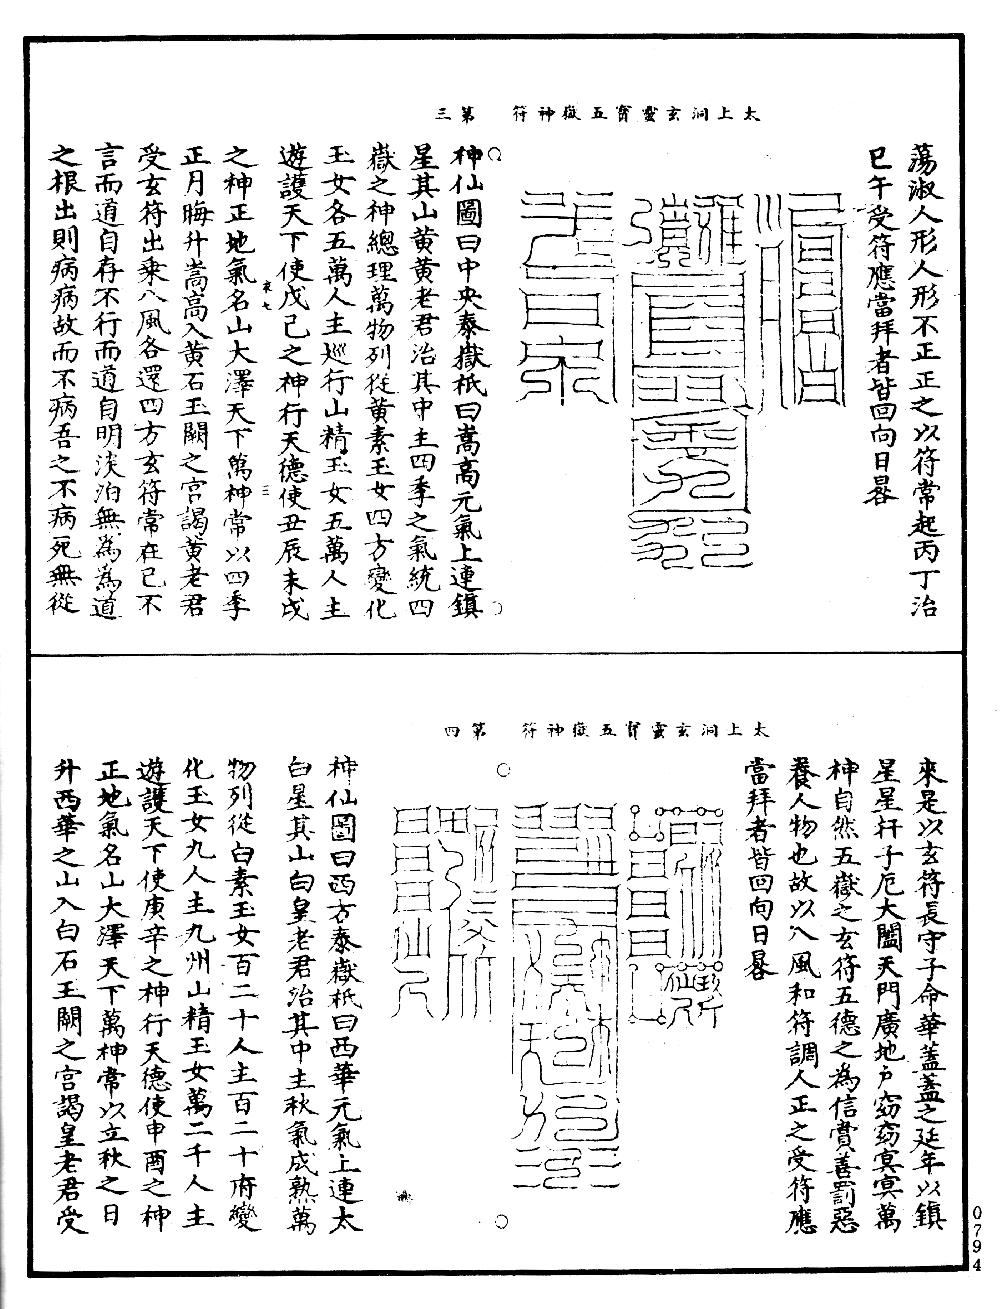 蕩淑人形人形不正正之以符常起丙丁治
巳午受符應當拜者皆回向日晷
太上洞玄靈寳五嶽神符　第三
神仙圖曰中央泰嶽祇曰嵩高元氣上連鎮
星其山黄黄老君治其中主四季之氣統四
嶽之神總理萬物列從黄素玉女四方變化
玉女各五萬人主巡行山精玉女五萬人主
遊護天下使戊己之神行天德使丑辰未戌
之神正地氣名山大澤天下萬神常以四季
正月晦升嵩高入黄石玉闕之宫謁黄老君
受玄符出乘八風各還四方玄符常在已不
言而道自存不行而道自明淡泊無為為道
之根出則病病故而不病吾之不病死無從
來是以玄符長守子命華蓋蓋之延年以鎮
星星扞子厄大闔天門廣地户窈窈冥冥萬
神自然五嶽之玄符五德之為信賞善罰惡
養人物也故以八風和符調人正之受符應
當拜者皆回向日晷
太上洞玄靈寳五嶽神符　第四
神仙圖曰西方泰嶽祇曰西華元氣上連太
白星其山白皇老君治其中主秋氣成熟萬
物列從白素玉女百二十人主百二十府變
化玉女九人主九州山精玉女萬二千人主
遊護天下使庚辛之神行天德使申酉之神
正地氣名山大澤天下萬神常以立秋之日
升西華之山入白石玉闕之宫謁皇老君受
0794